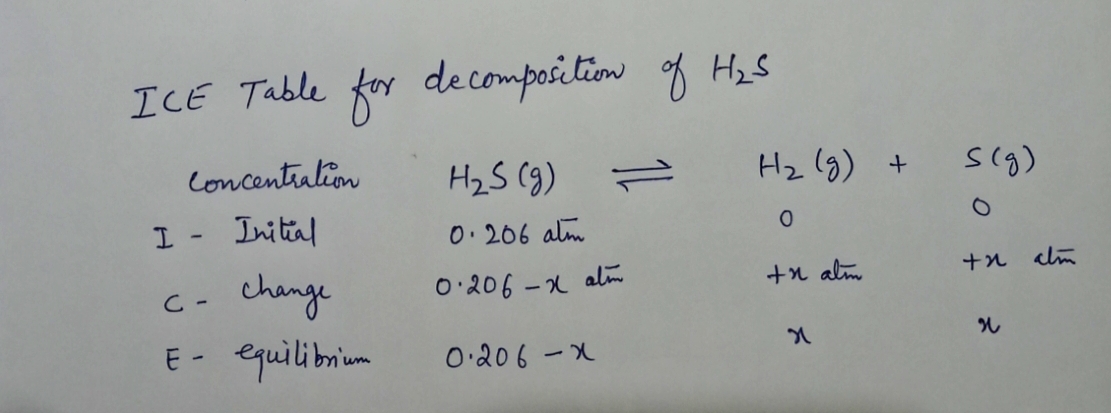 ICE Table for decomposition of H₂S
Concentration H₂S (g) ⇌ H₂ (g) + S (g)
I - Initial 0.206 atm 0 0
C - change 0.206 - x atm +x atm +x atm
E - equilibrium 0.206 - x x x